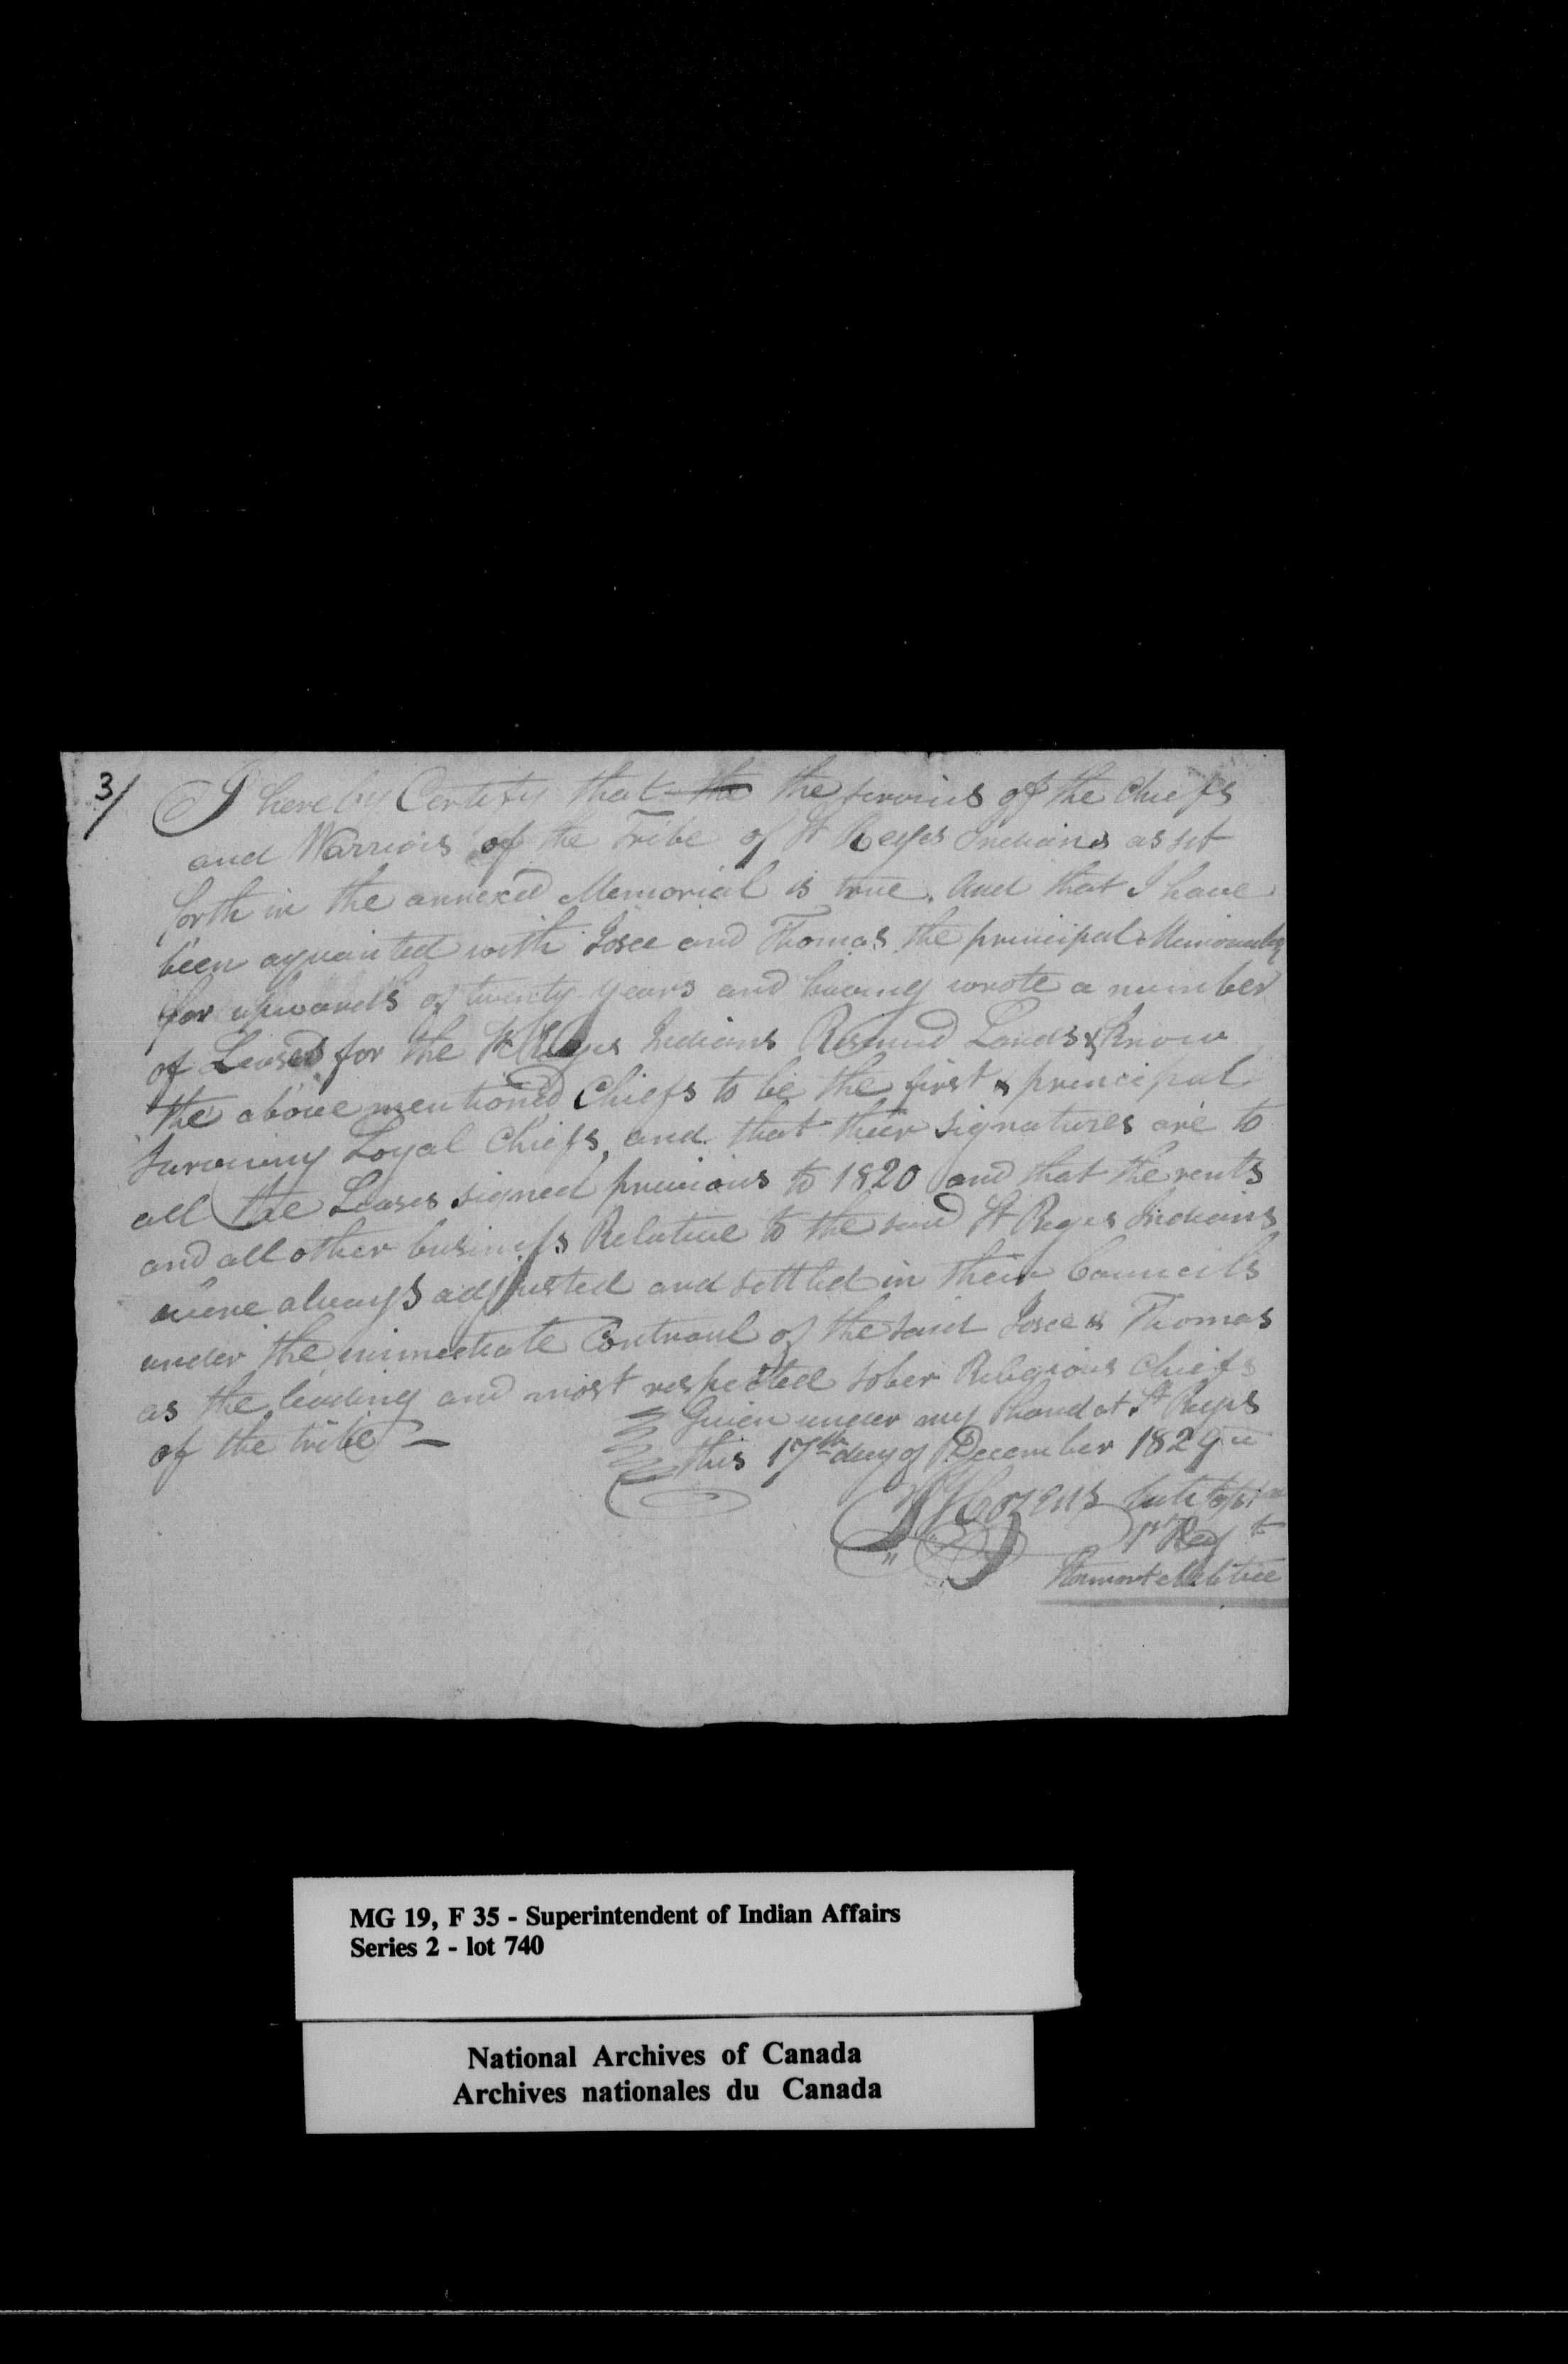 3/
I hereby Certify that the the services of the Chiefs
and Warriors of the Tribe of St Regis Indians as set
forth in the annexed Memorial is true. And that I have
been aquainted with Josee and Thomas the principal
for upwards of twenty years and having wrote a number
of Leases for the St Regis Indians Reserved Lands & know
the above mentioned Chiefs to be the first & principal
surviving Loyal Chiefs, and that their signatures are to
all the Leases signed previous to 1820 and that the rents
and all other business Relative to the said St Regis Indians
were always adjusted and settled in their Councils
under the immediate Controul of the said Josee & Thomas
as the leading and most respected sober Religious Chiefs
of the tribe —
Given under my hand at St Regis
this 17th day of December 1829
Cozens late
1st Regt
Stormont Militia
MG 19, F 35 - Superintendent of Indian Affairs
Series 2 - lot 740
National Archives of Canada
Archives nationales du Canada